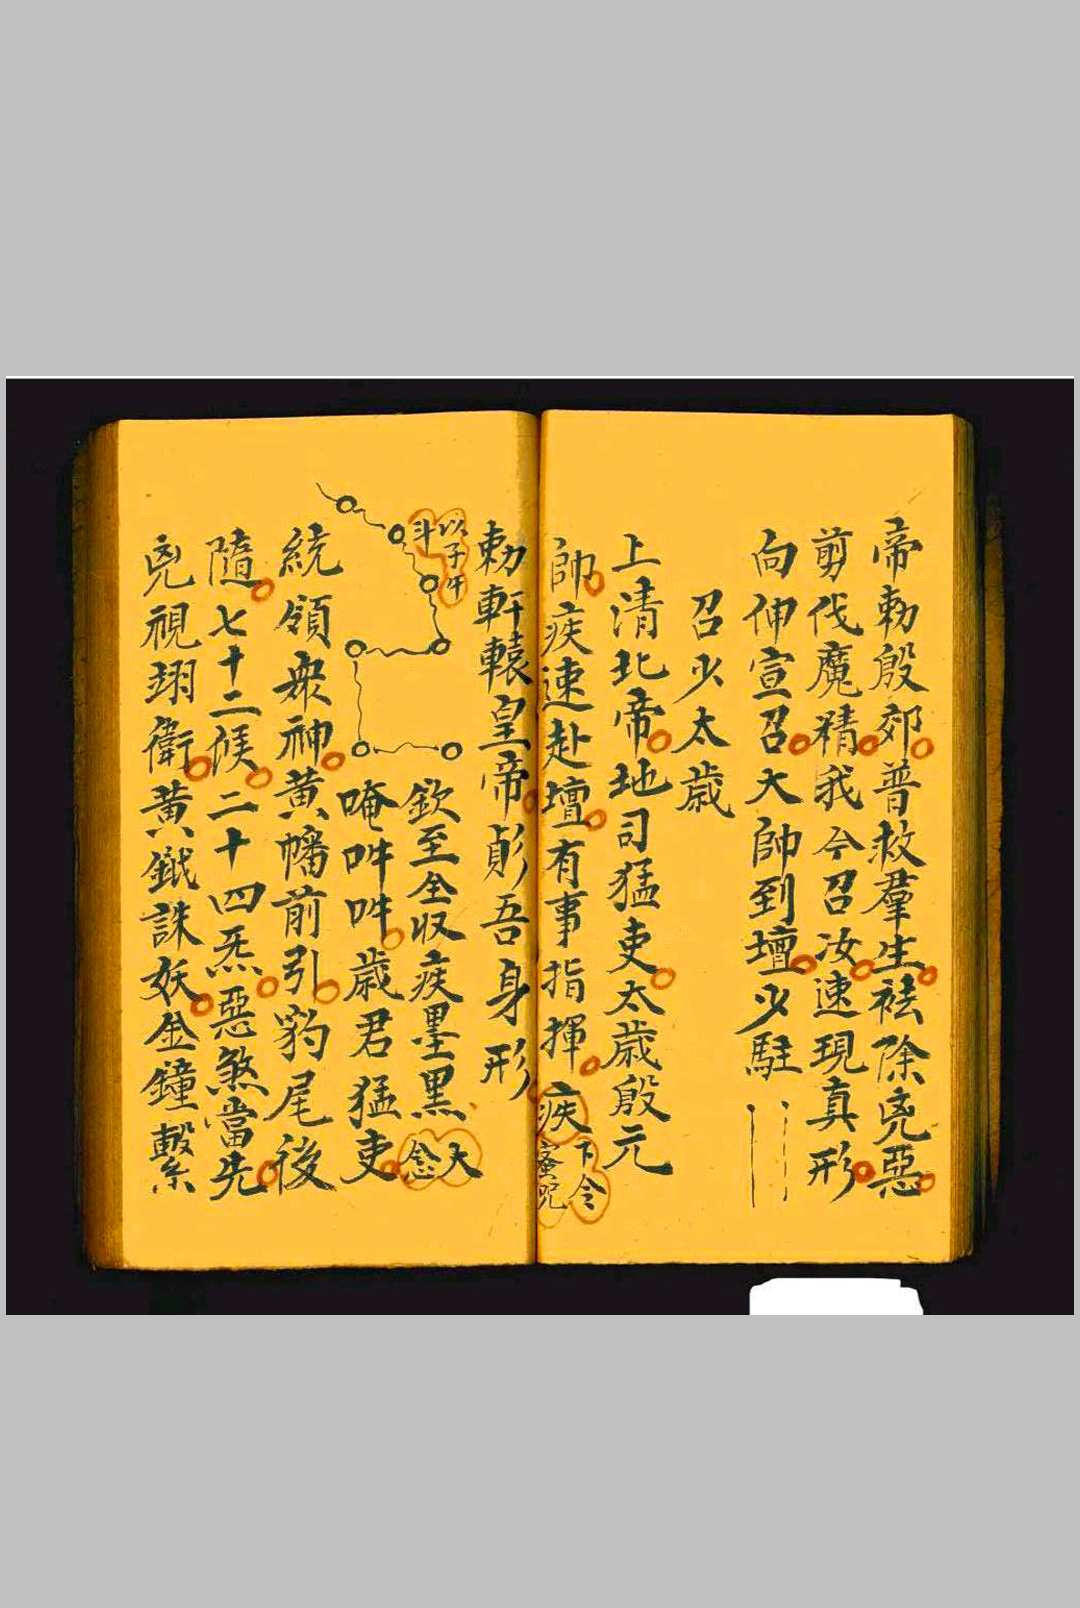 帝勅殷郊普救羣生袪除兇惡
剪伐魔精我今召汝速現真形
向伸宣召大帥到壇少駐
召少太歲
上清北帝地司猛吏太歲殷元
帥疾速赴壇有事指揮疾
下令
蜜咒
勅軒轅皇帝顛吾身形
以子午
斗
欽至全収疾墨黑
大
念
唵吽吽歲君猛吏
統領衆神黄幡前引豹尾後
隨七十二候二十四炁惡煞當先
兇視翊衛黄鉞誅妖金鐘繫